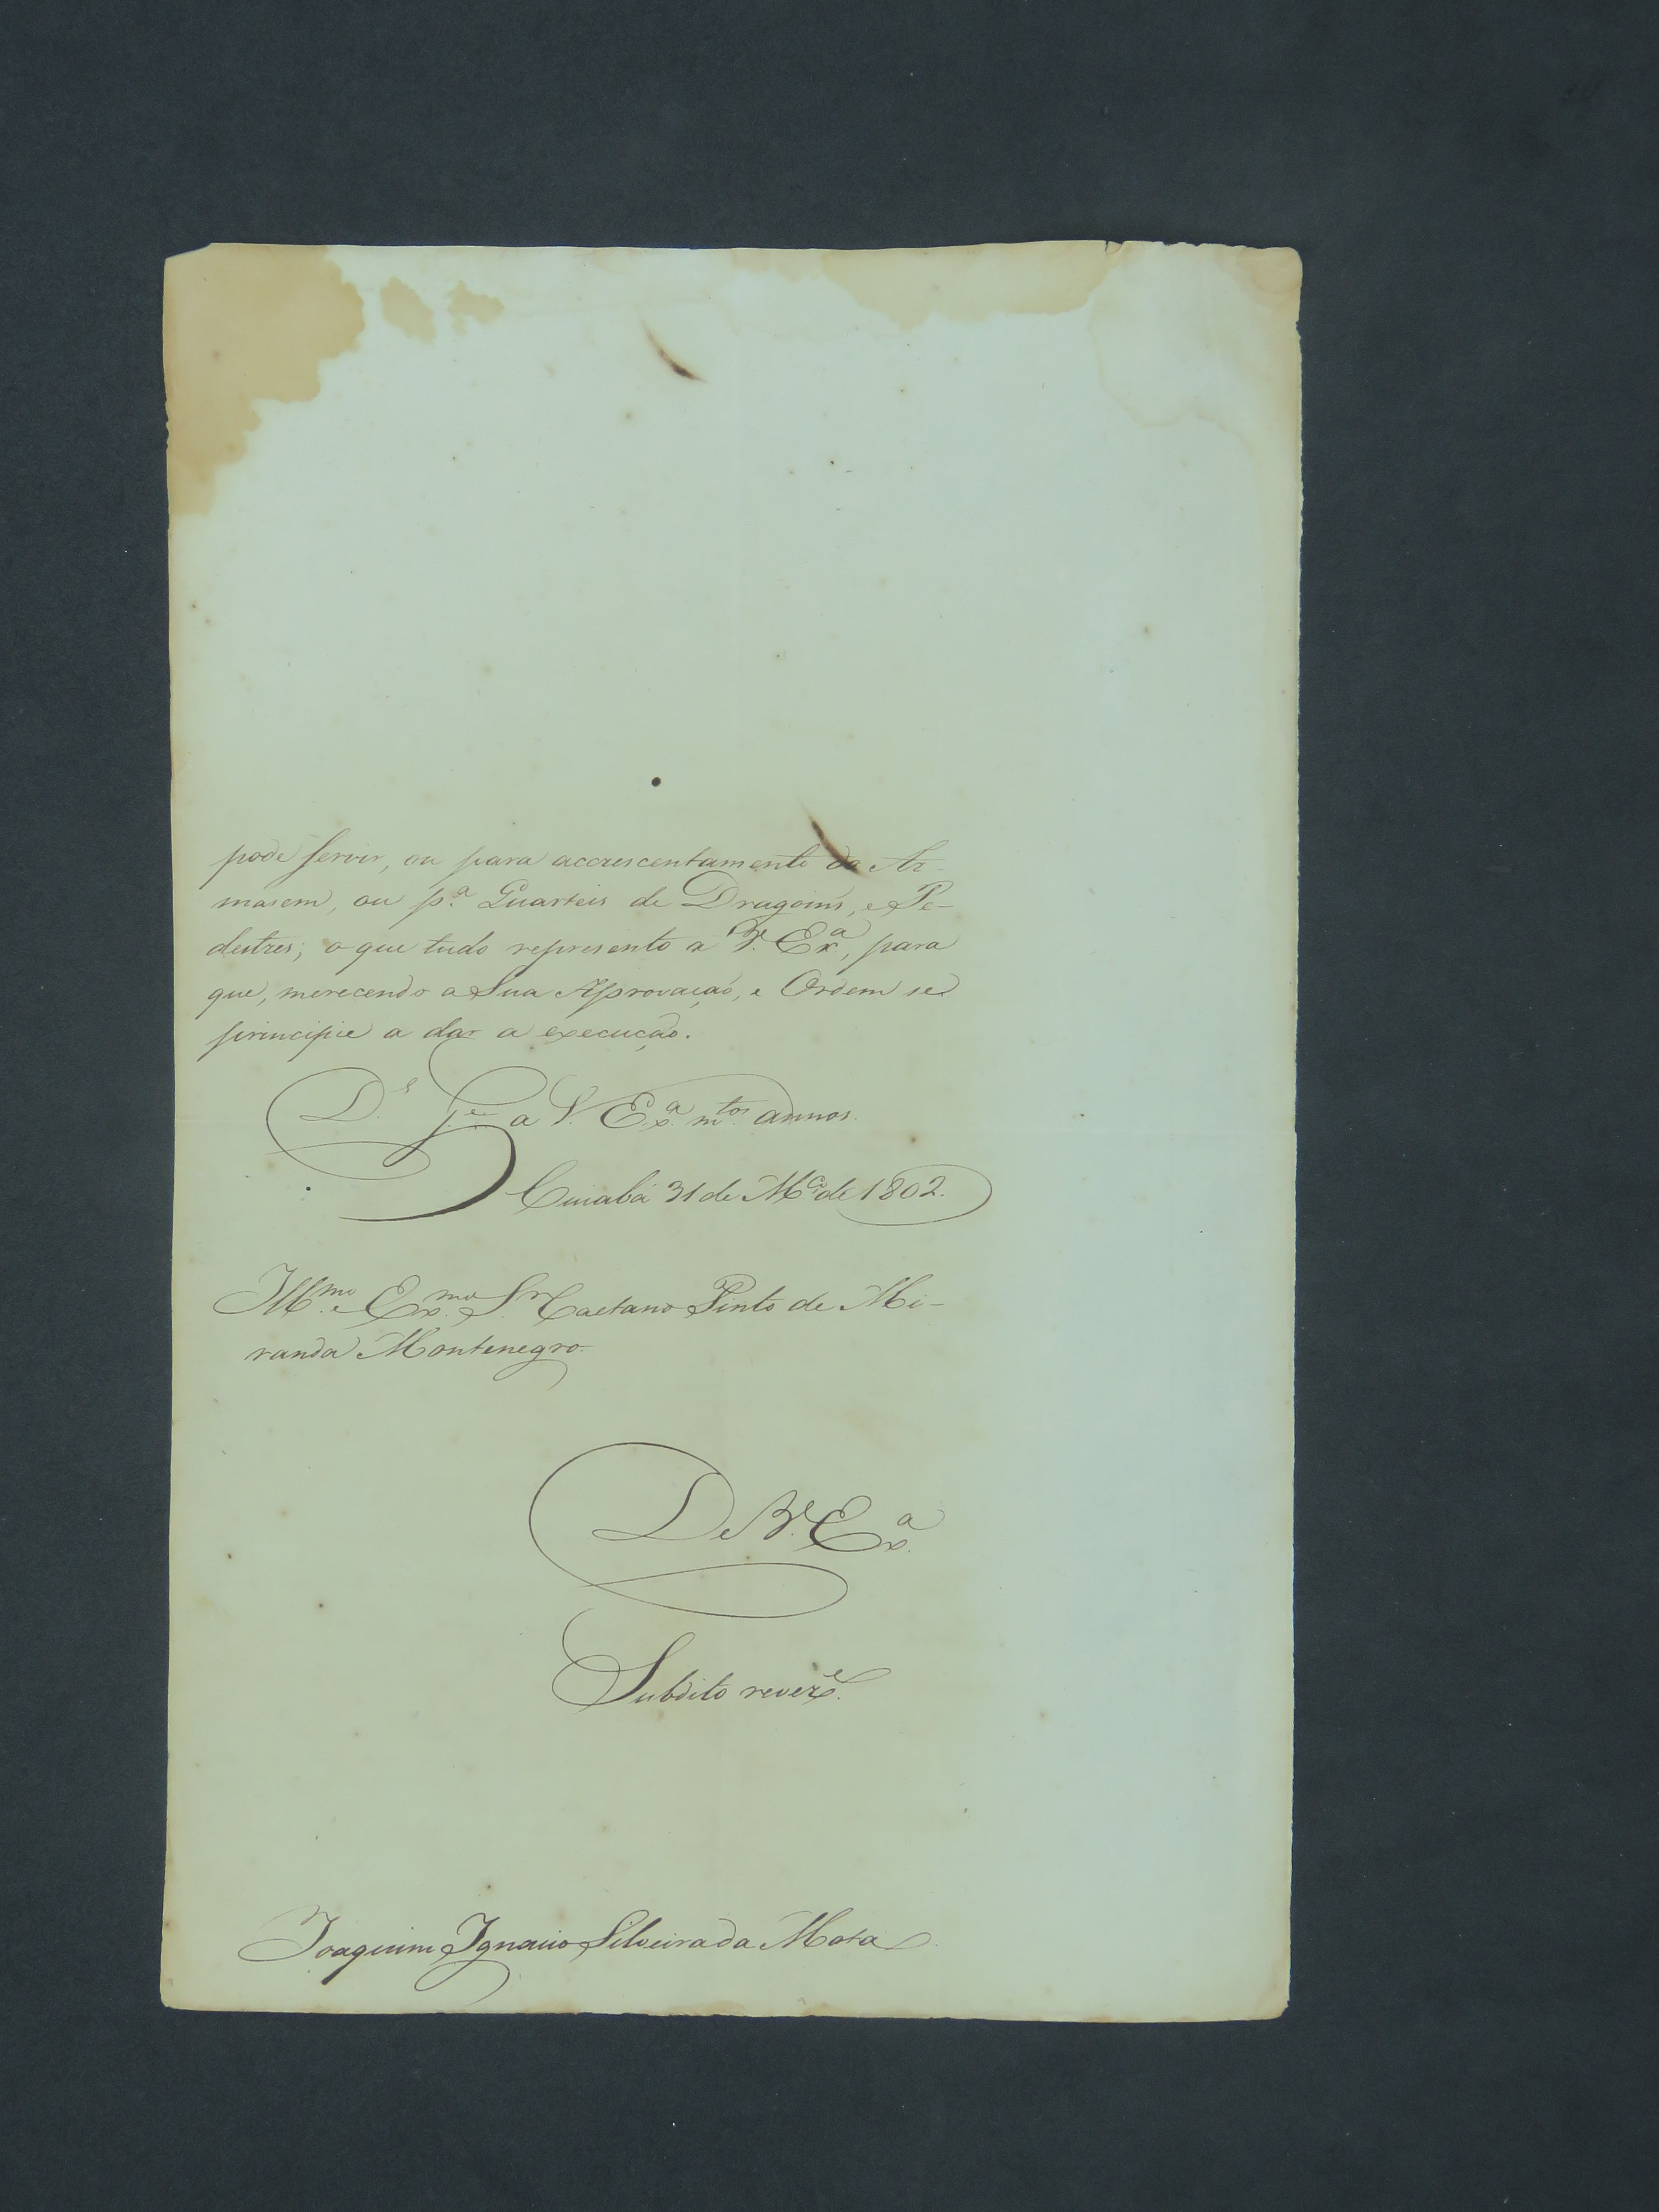 pode servir, ou para accrescentamento do Ar-
masem, ou p.ª Quarteis de Dragoins, e Pe-
destres; o que tudo represento a V. Ex.ª, para
que, merecendo a Sua Aprovação, e Ordem se
principie a dar a execução.
D.s g.e a V. Ex.ª m.tos annos.
Cuiabá 31 de M.ço de 1802.
Ill.mo e Ex.mo S.r Caetano Pinto de Mi-
randa Montenegro.
De V. Ex.ª
Subdito rever.e
Joaquim Ignacio Silveira da Mota